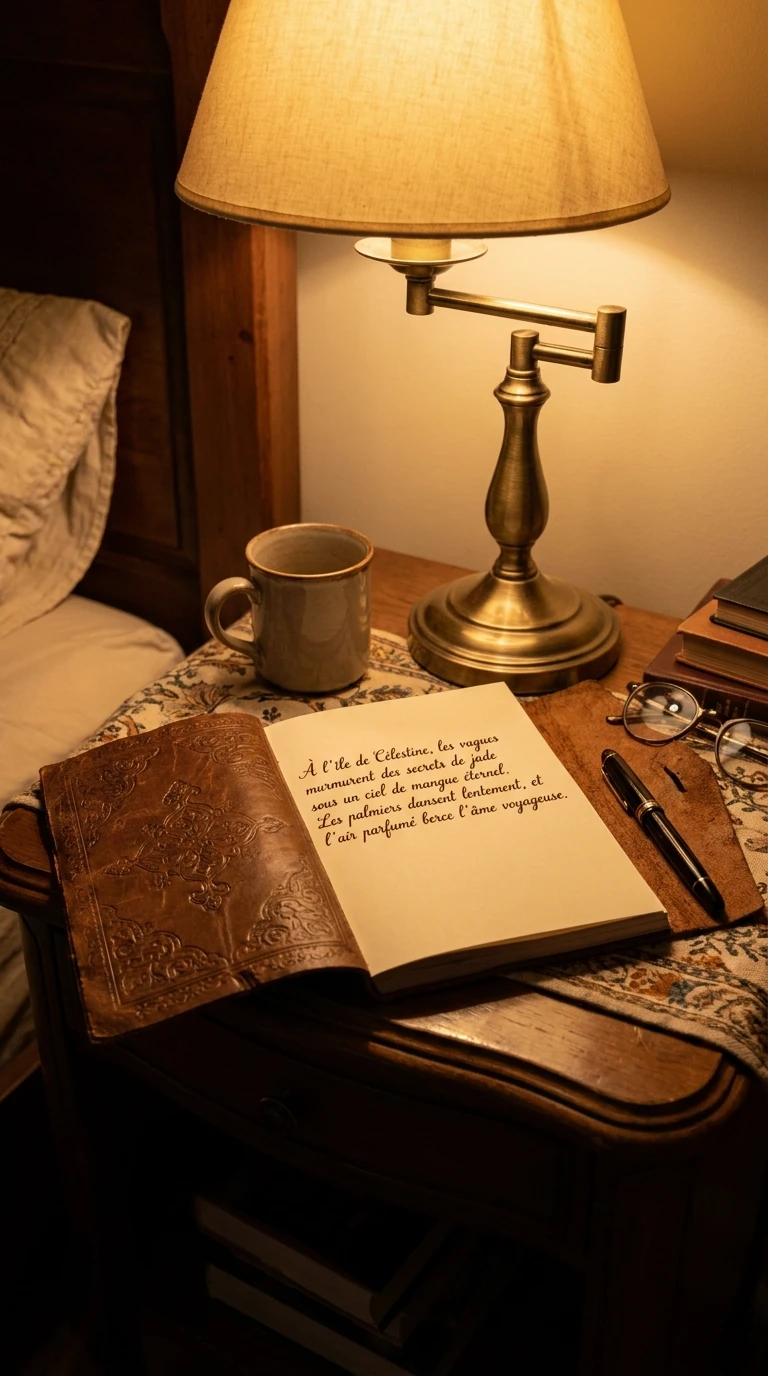 À l'île de Célestine, les vagues
murmurent des secrets de jade
sous un ciel de mangue éternel.
Les palmiers dansent lentement, et
l'air parfumé berce l'âme voyageuse.